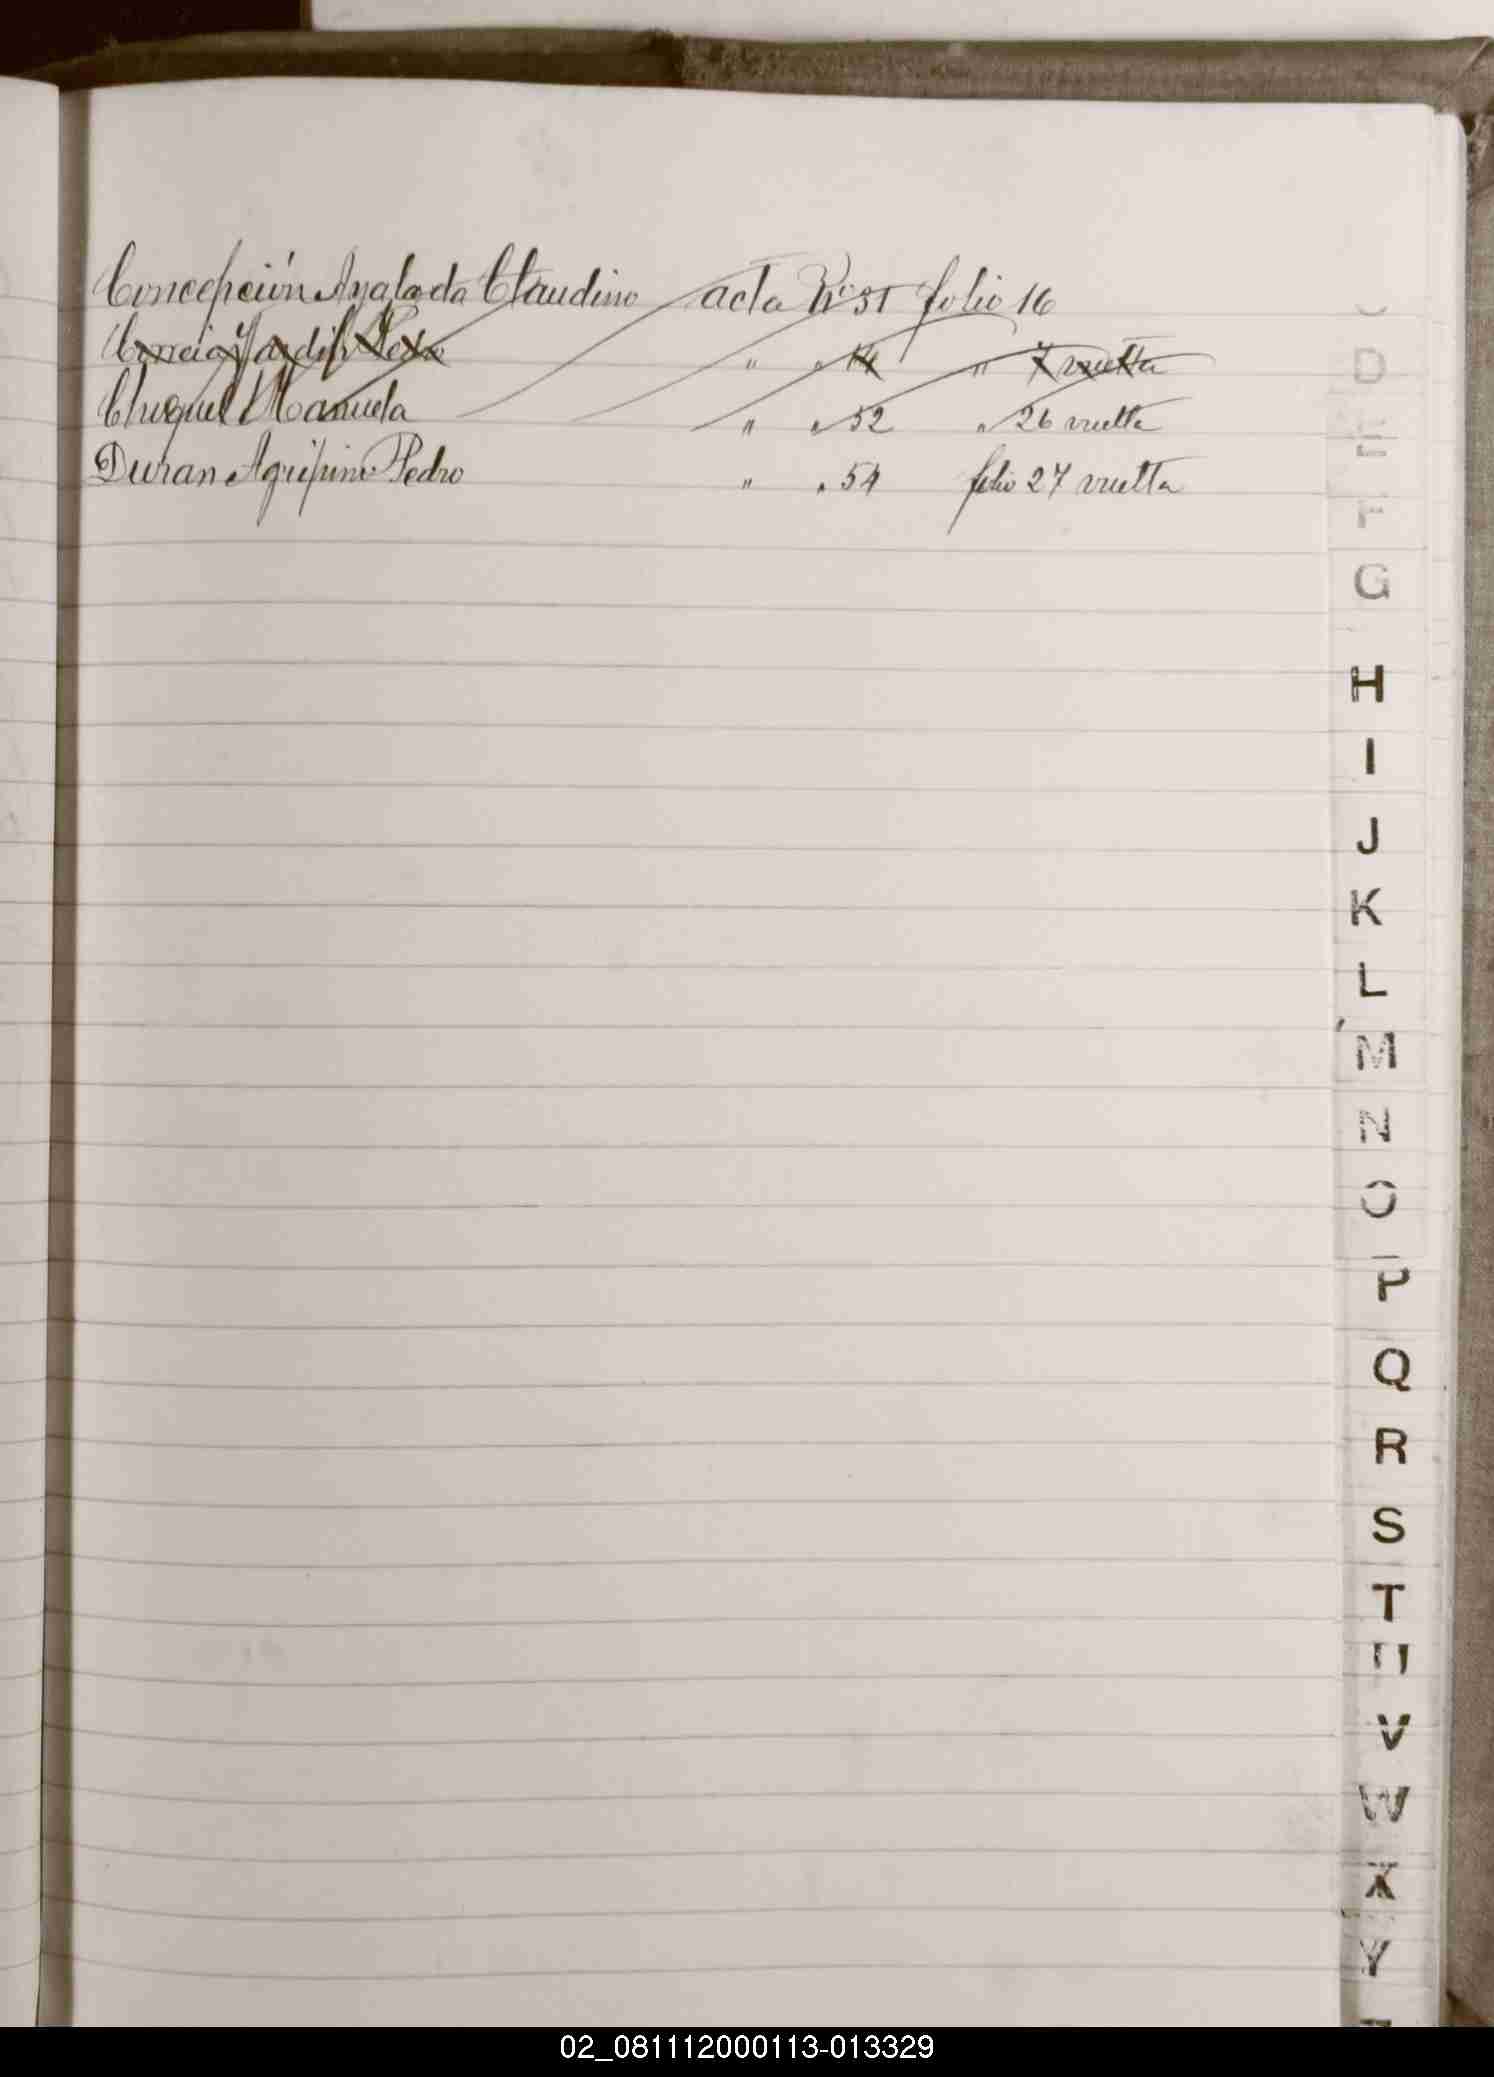 Concepción Anglada Claudino acta Nº 31 folio 16
Pedro " " 14 " 7 vuelta
Chuquel Manuela " " 52 " 26 vuelta
Duran Agripino Pedro " " 54 folio 27 vuelta
D
E
F
G
H
I
J
K
L
M
N
O
P
Q
R
S
T
U
V
W
X
Y
02_081112000113-013329